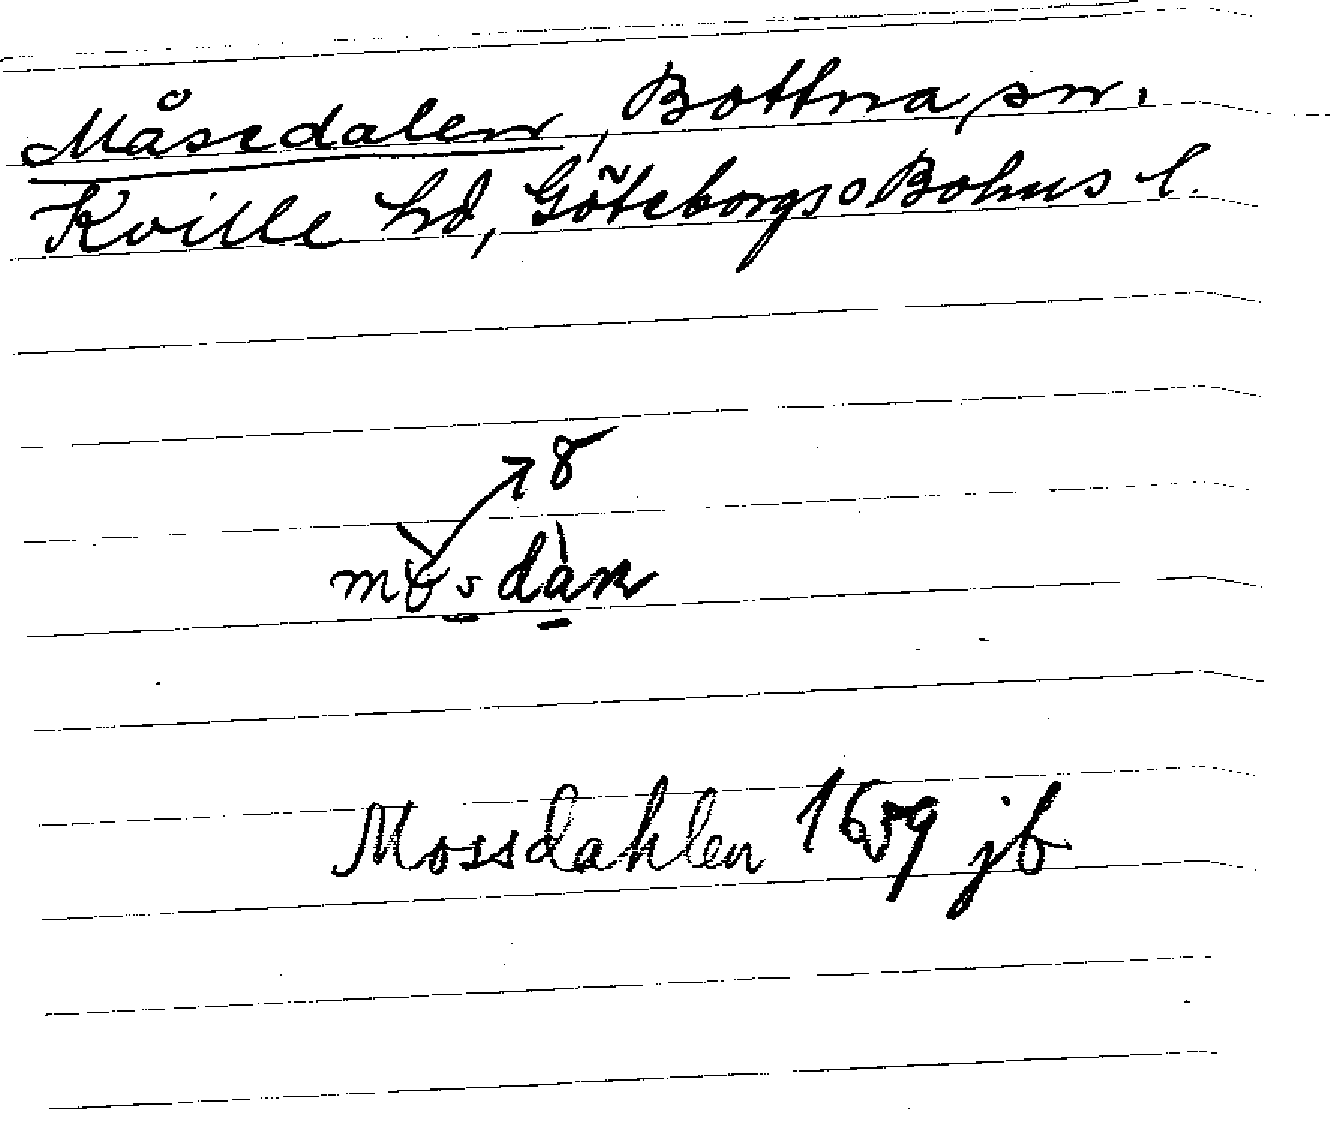 Måsedalen, Bottna sn.
Kville hd, Göteborgs o Bohus l.
Mossdahlen 1659 jb